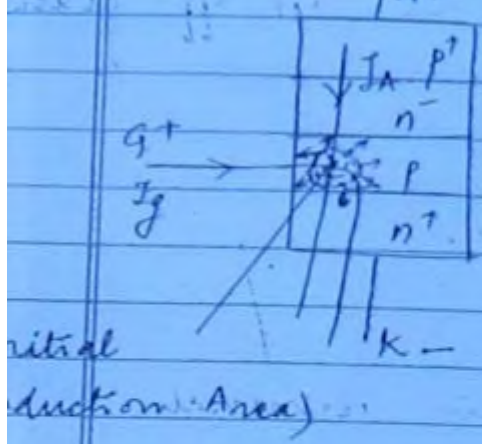 J_A p+
n-
G+
Ig
p
n+
K -
nitial
duction Area)